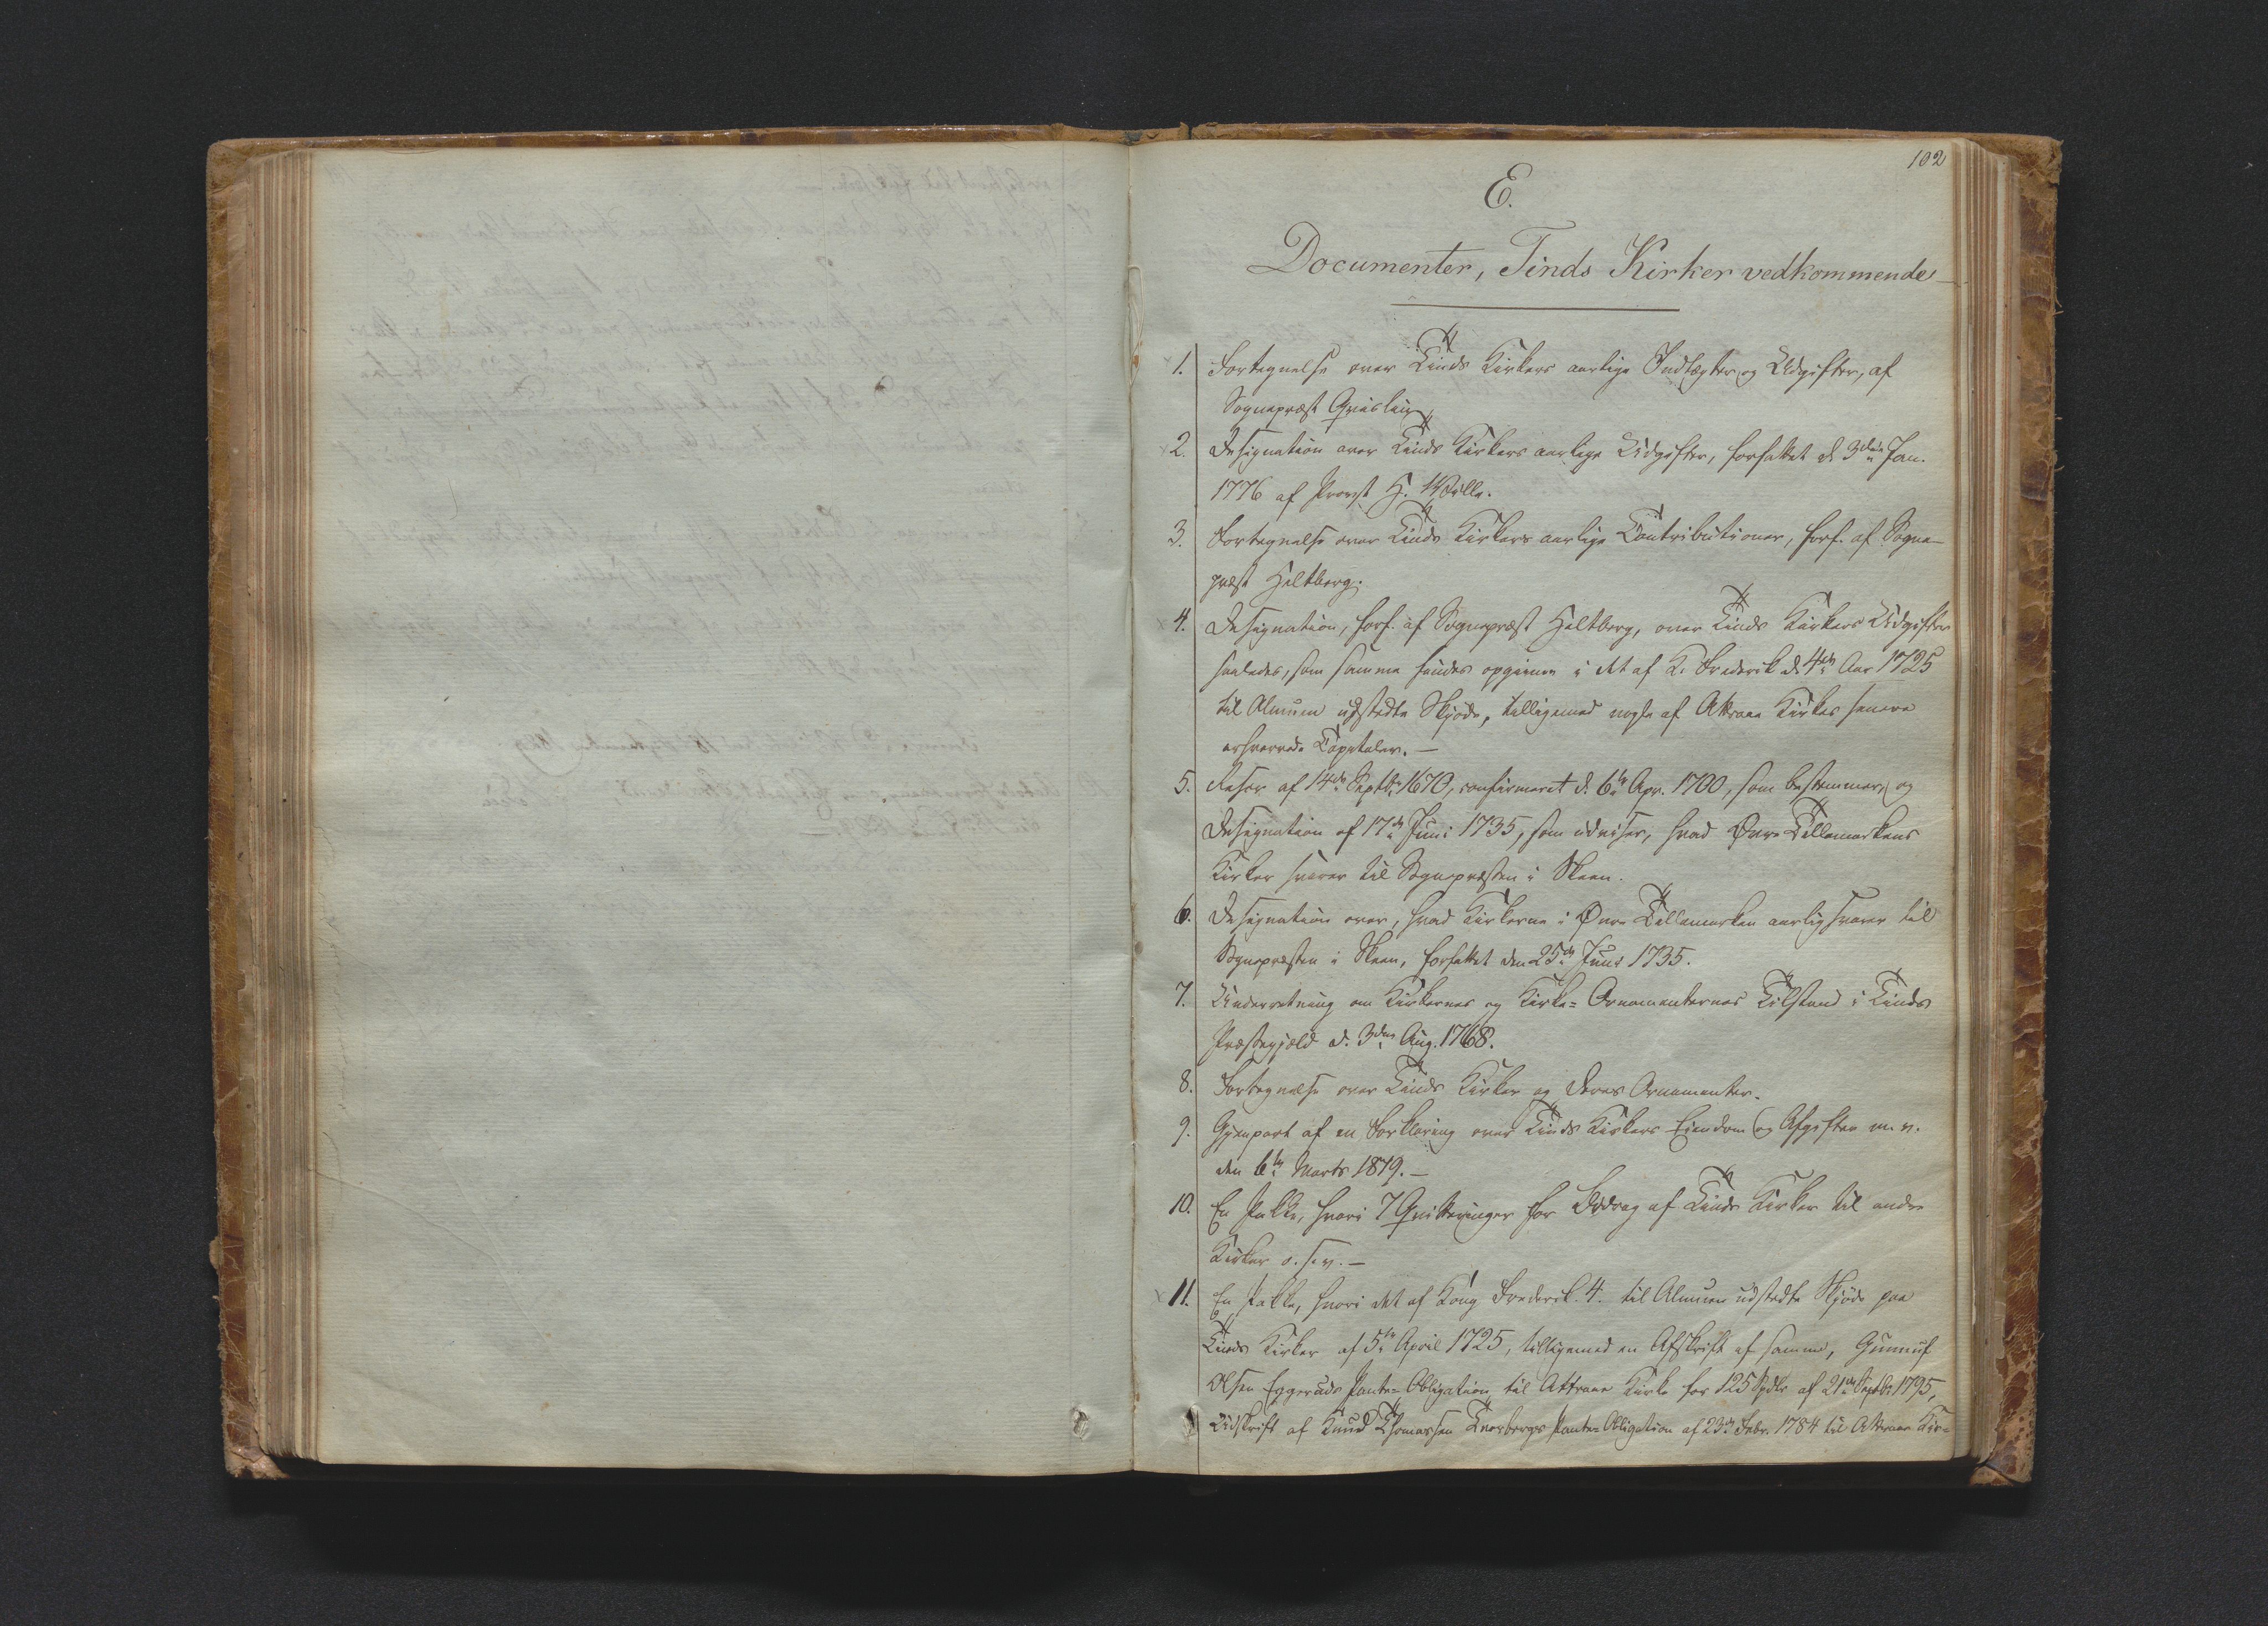 102
E.
Documenter, Tinds Kirker vedkommende
1. Fortegnelse over Tinds Kirkers aarlige Indtægter og Udgifter, af
Sognepræst Qvislin
2. Designation over Tinds Kirkers aarlige Udgifter, forfattet d. 3die Jan.
1776 af Provst H. Wille.
3. Fortegnelse over Tinds Kirkers aarlige Contributioner, forf. af Sogne-
præst Heltberg.
4. Designation, forf. af Sognepræst Heltberg, over Tinds Kirkers Udgifter
saaledes, som samme findes opgivne i det af K. Frederik d. 4de Aar 1725
til Almuen udstedte Skjøde, tilligemed nogle af Attraae Kirkes senere
erhvervede Capitaler. —
5. Reser af 14de Septbr 1670, confirmeret d. 6te Apr. 1700, som bestemmer, og
Designation af 17de Juni 1735, som udviser, hvad Øvre Tellemarkens
Kirker svarer til Sognepræsten i Skeen.
6. Designation over, hvad Kirkerne i Øvre Tellemarken aarlig svarer til
Sognepræsten i Skeen, forfattet den 25de Juni 1735.
7. Underretning om Kirkernes og Kirke= Ornamenternes Tilstand i Tinds
Præstegjæld d. 3die Aug. 1768.
8. Fortegnelse over Tinds Kirker og deres Ornamenter.
9. Gjenpart af en Forklaring over Tinds Kirkers Eiendom og Afgifter m. v.
den 6te Marts 1819. —
10. En Pakke, hvori 7 Qvitteringer for Bidrag af Tinds Kirker til andre
Kirker o. s. v. —
11. En Pakke, hvori det af Kong Frederik 4. til Almuen udstedte Skjøde paa
Tinds Kirker af 5te April 1725, tilligemed en Afskrift af samme, Gunnuf
Olsen Eggeruds Pante= Obligation til Attraae Kirke for 125 Spdlr af 21de Septbr 1795,
Udskrift af Knud Thomassen Pante= Obligation af 23de Febr. 1784 til Attraae Kir=